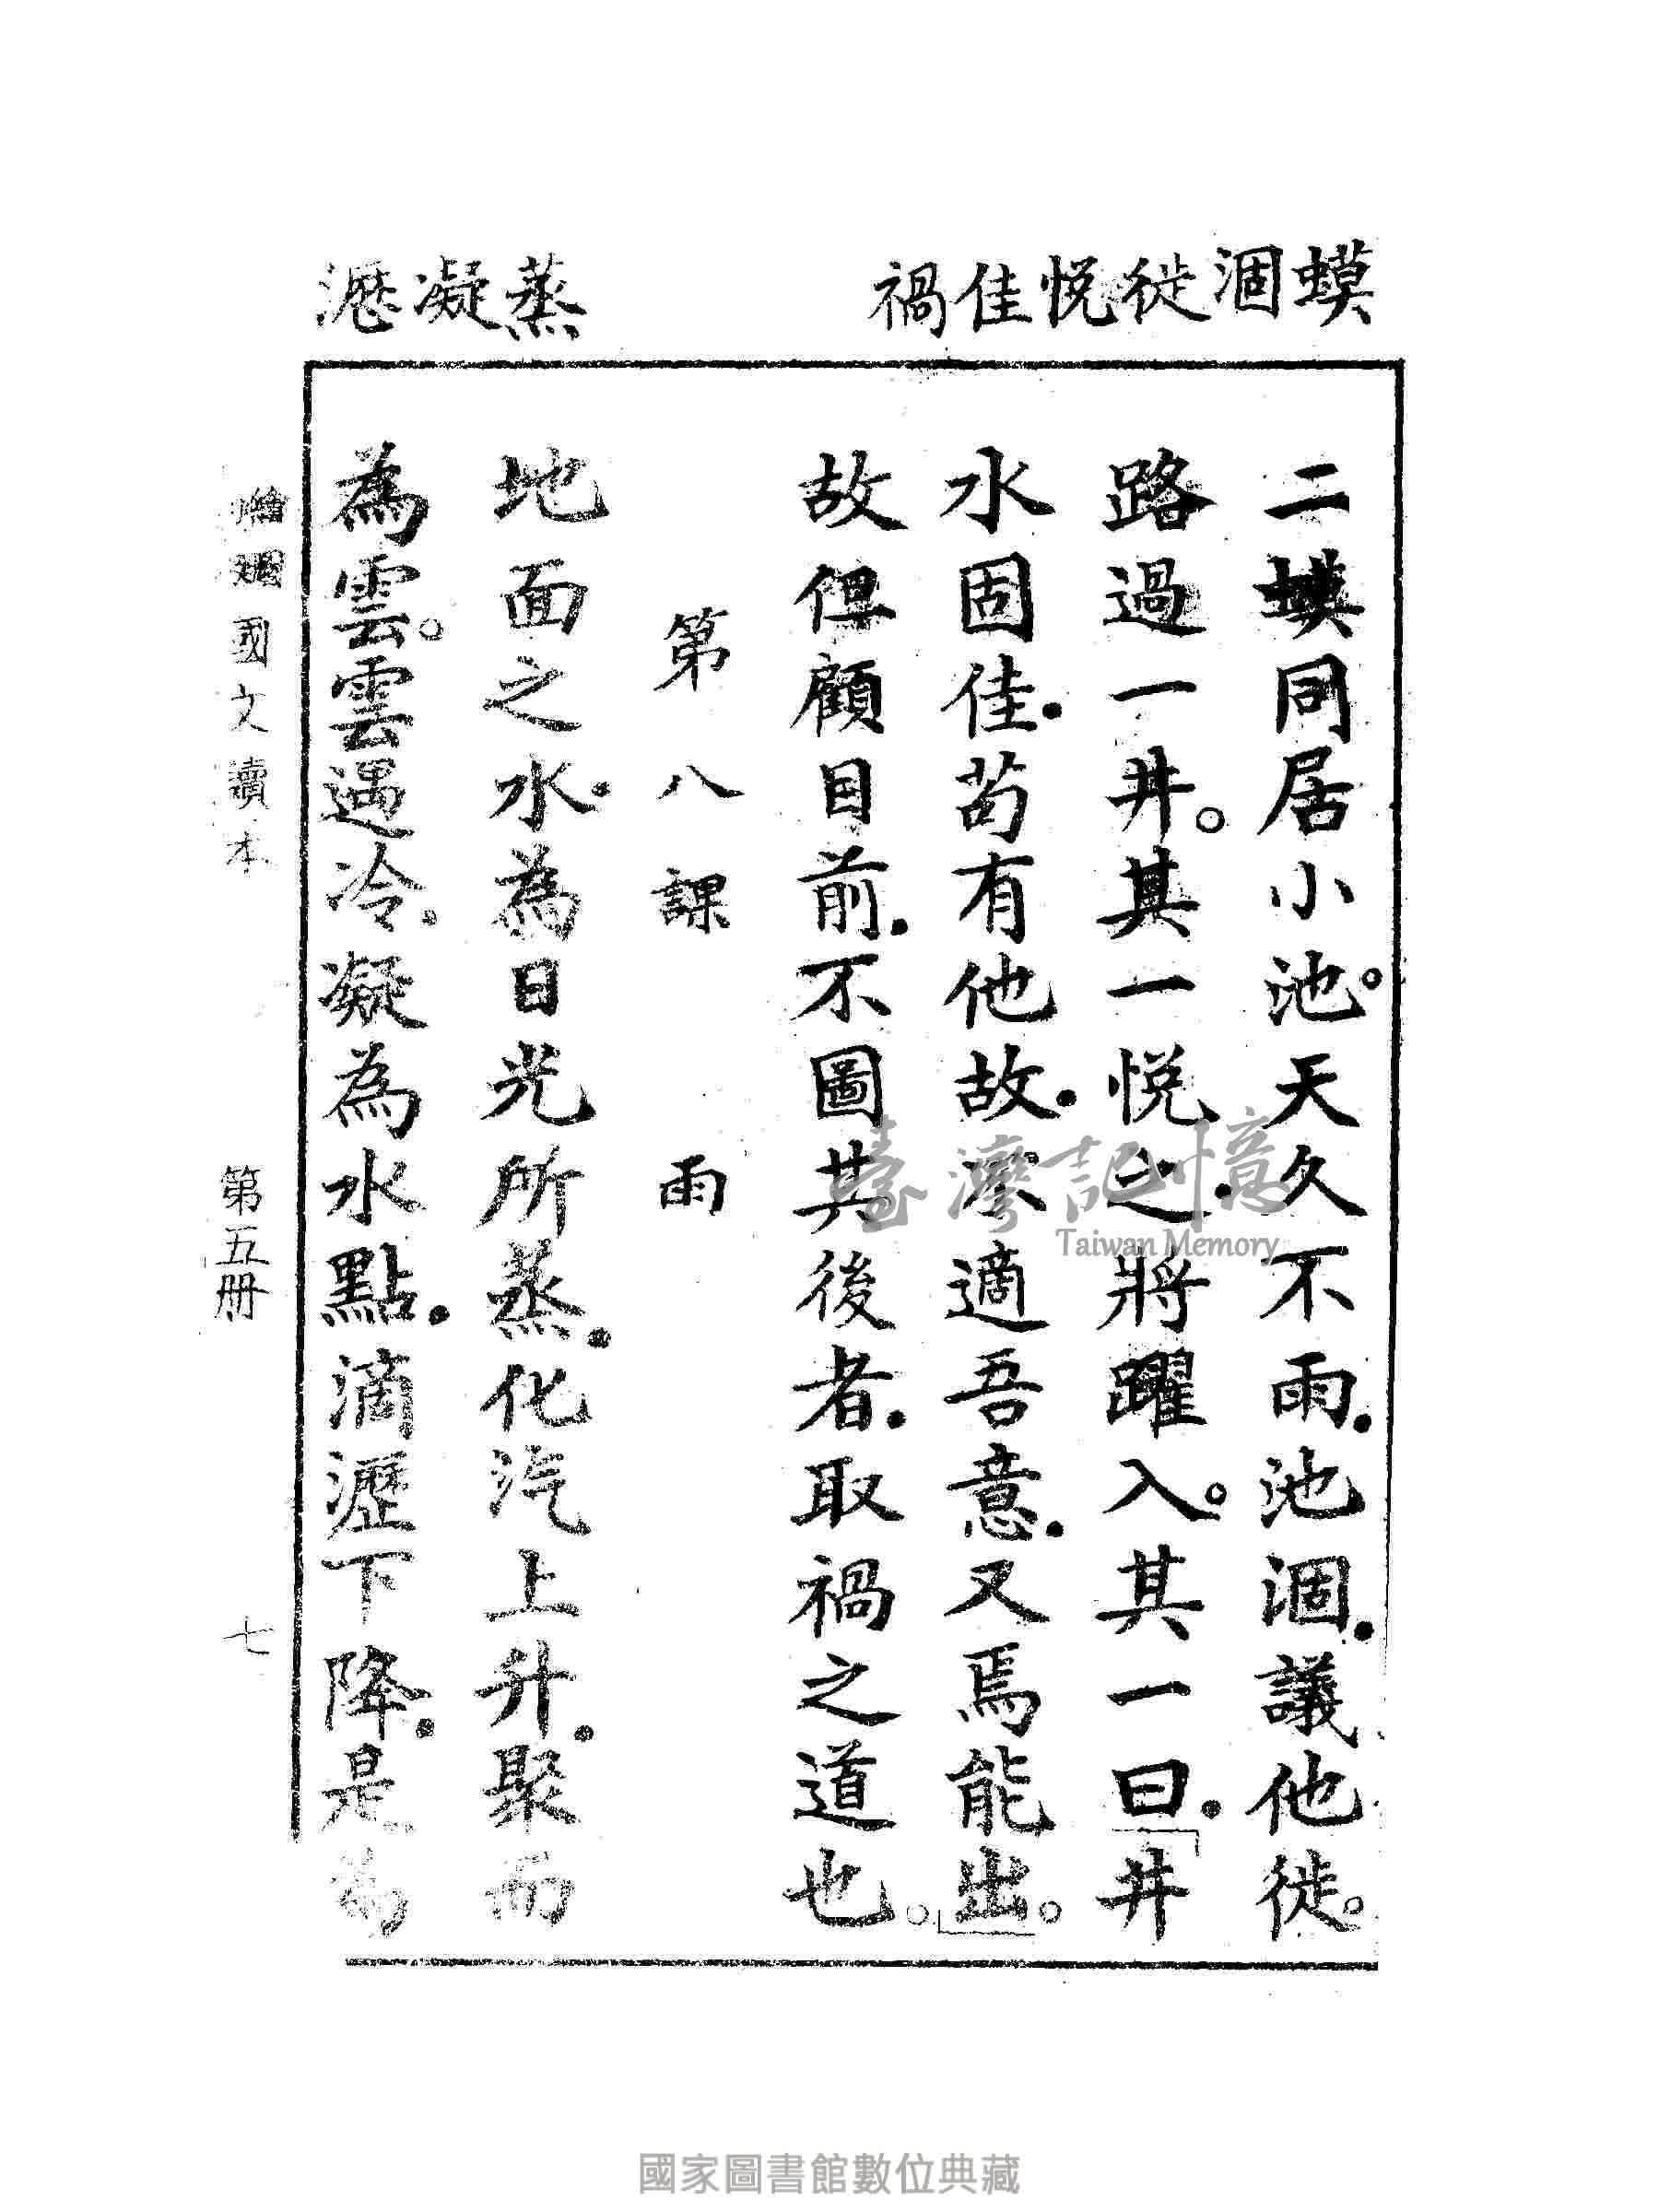 蟆涸徙悦佳禍
蒸凝瀝
二蟆同居小池。天久不雨.池涸.議他徙。
路過一井。其一悦之.將躍入。其一曰.「井
水固佳.苟有他故.水不適吾意.又焉能出。」
故但顧目前.不圖其後者.取禍之道也。
第八課 雨
地面之水.為日光所蒸.化汽上升.聚而
為雲。雲遇冷.凝為水點.滴瀝下降.是為
國文讀本 第五冊 七
臺灣記憶
Taiwan Memory
國家圖書館數位典藏